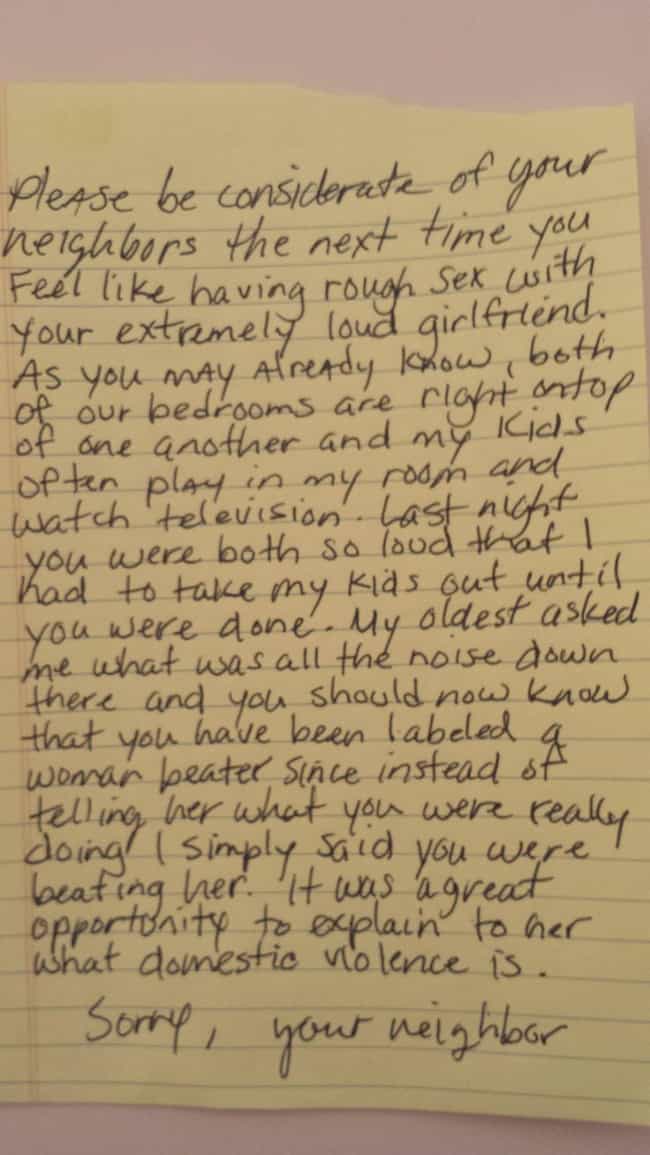 Please be considerate of your
neighbors the next time you
Feel like having rough sex with
your extremely loud girlfriend.
As you may Already know, both
of our bedrooms are right ontop
of one another and my kids
often play in my room and
watch television. Last night
you were both so loud that I
had to take my kids out until
you were done. My oldest asked
me what was all the noise down
there and you should now know
that you have been labeled a
woman beater since instead of
telling her what you were really
doing I simply said you were
beating her. It was a great
opportunity to explain to her
what domestic violence is.
Sorry, your neighbor